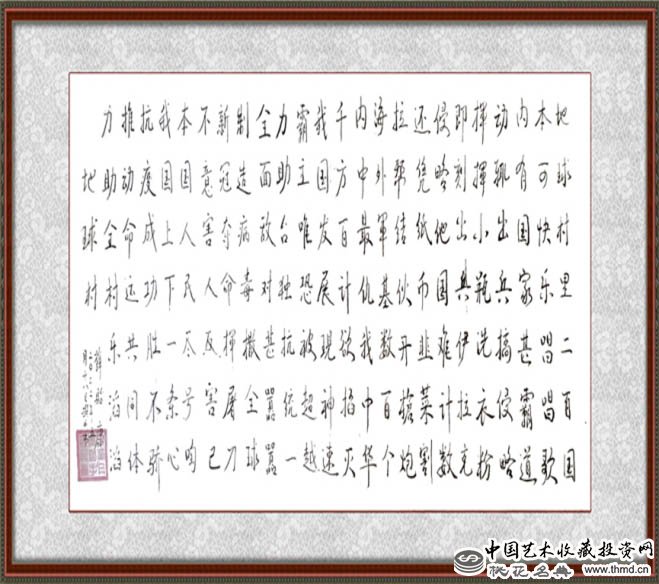 地球村里二百国
本可快乐唱唱歌
内有国家甚霸道
动辄出兵搞侵略
挥挥小瓶洗衣粉
即刻出兵伊拉克
侵略他国难计数
还凭纸币韭菜割
拉帮结伙开枪炮
海外军基数百个
内中最仇我中华
千方百计欲掐灭
我国发展现神速
霸立唯恐被超越
力助台独抗统一
全面敌对甚嚣嚣
制造病毒撒全球
新冠夺命挥屠刀
不意害人反害己
本国人民尽号
我国上下一条心
抗度成功胜不骄
推动命运共同体
方助全村乐滔滔
地球村
中国艺术收藏投资网
www.thmd.cn